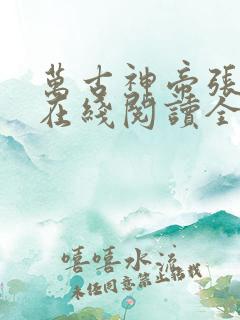 萬古神帝張
在綫閱讀全
嘻嘻水流
未經同意禁止轉載